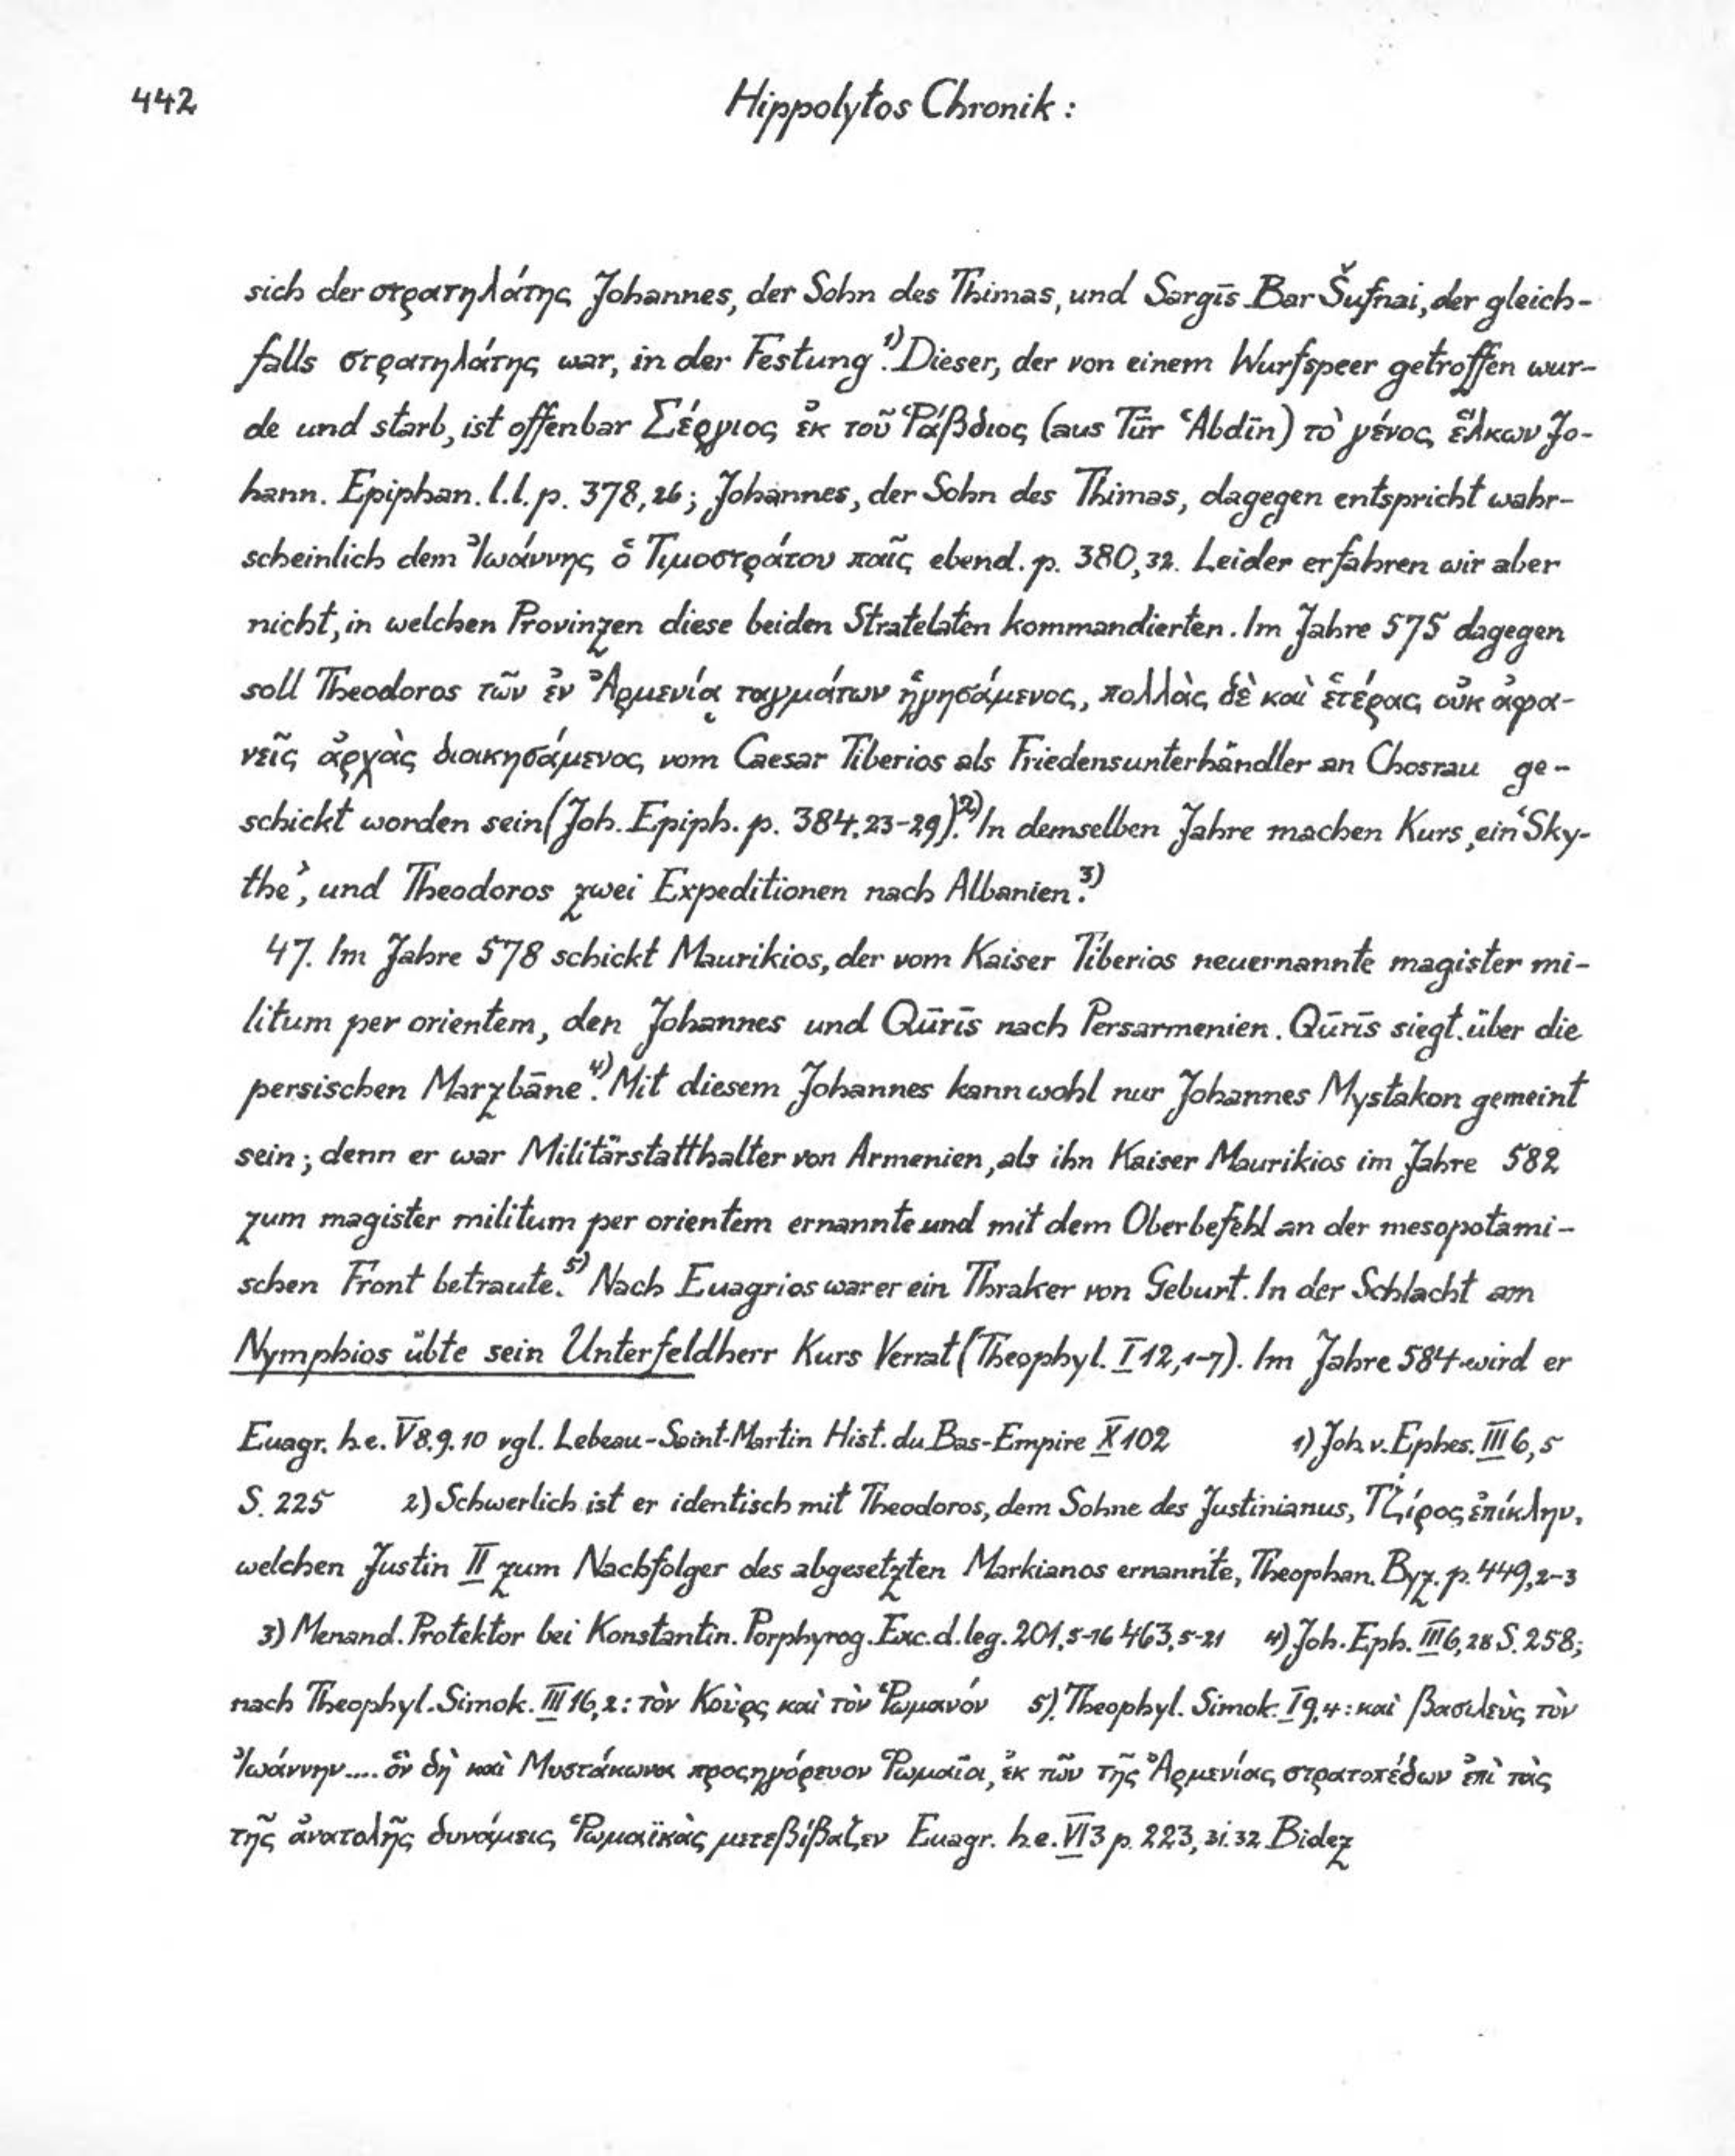 442
Hippolytos Chronik :
sich der στρατηλάτης Johannes, der Sohn des Thimas, und Sargīs Bar Šufnai, der gleich-
falls στρατηλάτης war, in der Festung.¹⁾ Dieser, der von einem Wurfspeer getroffen wur-
de und starb, ist offenbar Σέργιος ἐκ τοῦ Ῥάβδιος (aus Tūr ʿAbdīn) τὸ γένος ἕλκων Jo-
hann. Epiphan. l.l. p. 378,26; Johannes, der Sohn des Thimas, dagegen entspricht wahr-
scheinlich dem Ἰωάννης ὁ Τιμοστράτου παῖς ebend. p. 380,32. Leider erfahren wir aber
nicht, in welchen Provinzen diese beiden Stratelaten kommandierten. Im Jahre 575 dagegen
soll Theodoros τῶν ἐν Ἀρμενίᾳ ταγμάτων ἡγησάμενος, πολλὰς δὲ καὶ ἑτέρας οὐκ ἀφα-
νεῖς ἀρχὰς διοικησάμενος vom Caesar Tiberios als Friedensunterhändler an Chosrau ge-
schickt worden sein (Joh. Epiph. p. 384,23-29).²⁾ In demselben Jahre machen Kurs, ein ‘Sky-
the’, und Theodoros zwei Expeditionen nach Albanien.³⁾
47. Im Jahre 578 schickt Maurikios, der vom Kaiser Tiberios neuernannte magister mi-
litum per orientem, den Johannes und Qūrīs nach Persarmenien. Qūrīs siegt über die
persischen Marzbāne.⁴⁾ Mit diesem Johannes kann wohl nur Johannes Mystakon gemeint
sein; denn er war Militärstatthalter von Armenien, als ihn Kaiser Maurikios im Jahre 582
zum magister militum per orientem ernannte und mit dem Oberbefehl an der mesopotami-
schen Front betraute.⁵⁾ Nach Euagrios war er ein Thraker von Geburt. In der Schlacht am
Nymphios übte sein Unterfeldherr Kurs Verrat (Theophyl. I 12,1-7). Im Jahre 584 wird er
Euagr. h.e. V 8.9.10 vgl. Lebeau-Saint-Martin Hist. du Bas-Empire X 102 1) Joh. v. Ephes. III 6,5
S. 225 2) Schwerlich ist er identisch mit Theodoros, dem Sohne des Justinianus, Τζίρος ἐπίκλην,
welchen Justin II zum Nachfolger des abgesetzten Markianos ernannte, Theophan. Byz. p. 449,2-3
3) Menand. Protektor bei Konstantin. Porphyrog. Exc. d. leg. 201,5-16 463,5-21 4) Joh. Eph. III 6,28 S. 258;
nach Theophyl. Simok. III 16,2: τὸν Κοὺρς καὶ τὸν Ῥωμανόν 5) Theophyl. Simok. I 9,4: καὶ βασιλεὺς τὸν
Ἰωάννην.... ὃν δὴ καὶ Μυστάκωνα προςηγόρευον Ῥωμαῖοι, ἐκ τῶν τῆς Ἀρμενίας στρατοπέδων ἐπὶ τὰς
τῆς ἀνατολῆς δυνάμεις Ῥωμαϊκὰς μετεβίβαζεν Euagr. h.e. VI 3 p. 223, 31.32 Bidez